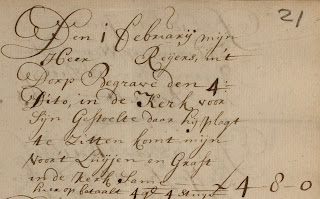 21
Den 1 februarij mijn
Heer Reijers, in't
Dorp Begrave den 4:
dito, in de Kerk voor
Sijn Gestoelte daar hij plagt
te Zitten komt mijn
voor't Luijen en Graft
in de Kerk Sam̄a 4-8-0
hier op betaalt 4